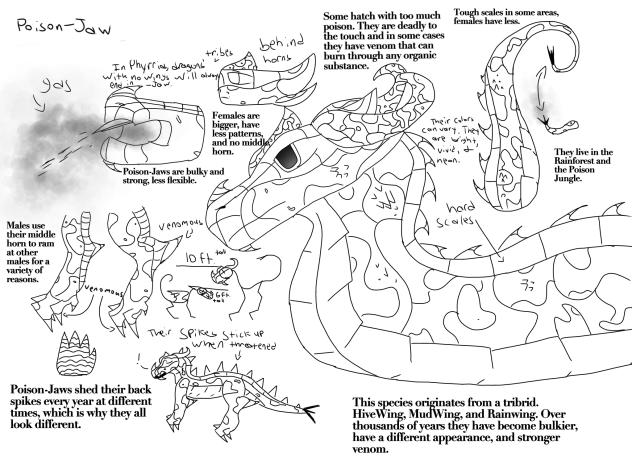 Poison-Jaw
In Phyrria, dragons
tribes
with no wings will always
end in -Jaw.
gas
behind
horns
Some hatch with too much
poison. They are deadly to
the touch and in some cases
they have venom that can
burn through any organic
substance.
Tough scales in some areas,
females have less.
Females are
bigger, have
less patterns,
and no middle
horn.
Poison-Jaws are bulky and
strong, less flexible.
Their colors
can vary. They
are bright,
vivid, &
neon.
They live in the
Rainforest and
the Poison
Jungle.
hard
scales.
Males use
their middle
horn to ram
at other
males for a
variety of
reasons.
venomous
venomous
10 ft. tall
6 ft
tall
Their spikes stick up
when threatened
!
Poison-Jaws shed their back
spikes every year at different
times, which is why they all
look different.
This species originates from a tribrid.
HiveWing, MudWing, and Rainwing. Over
thousands of years they have become bulkier,
have a different appearance, and stronger
venom.